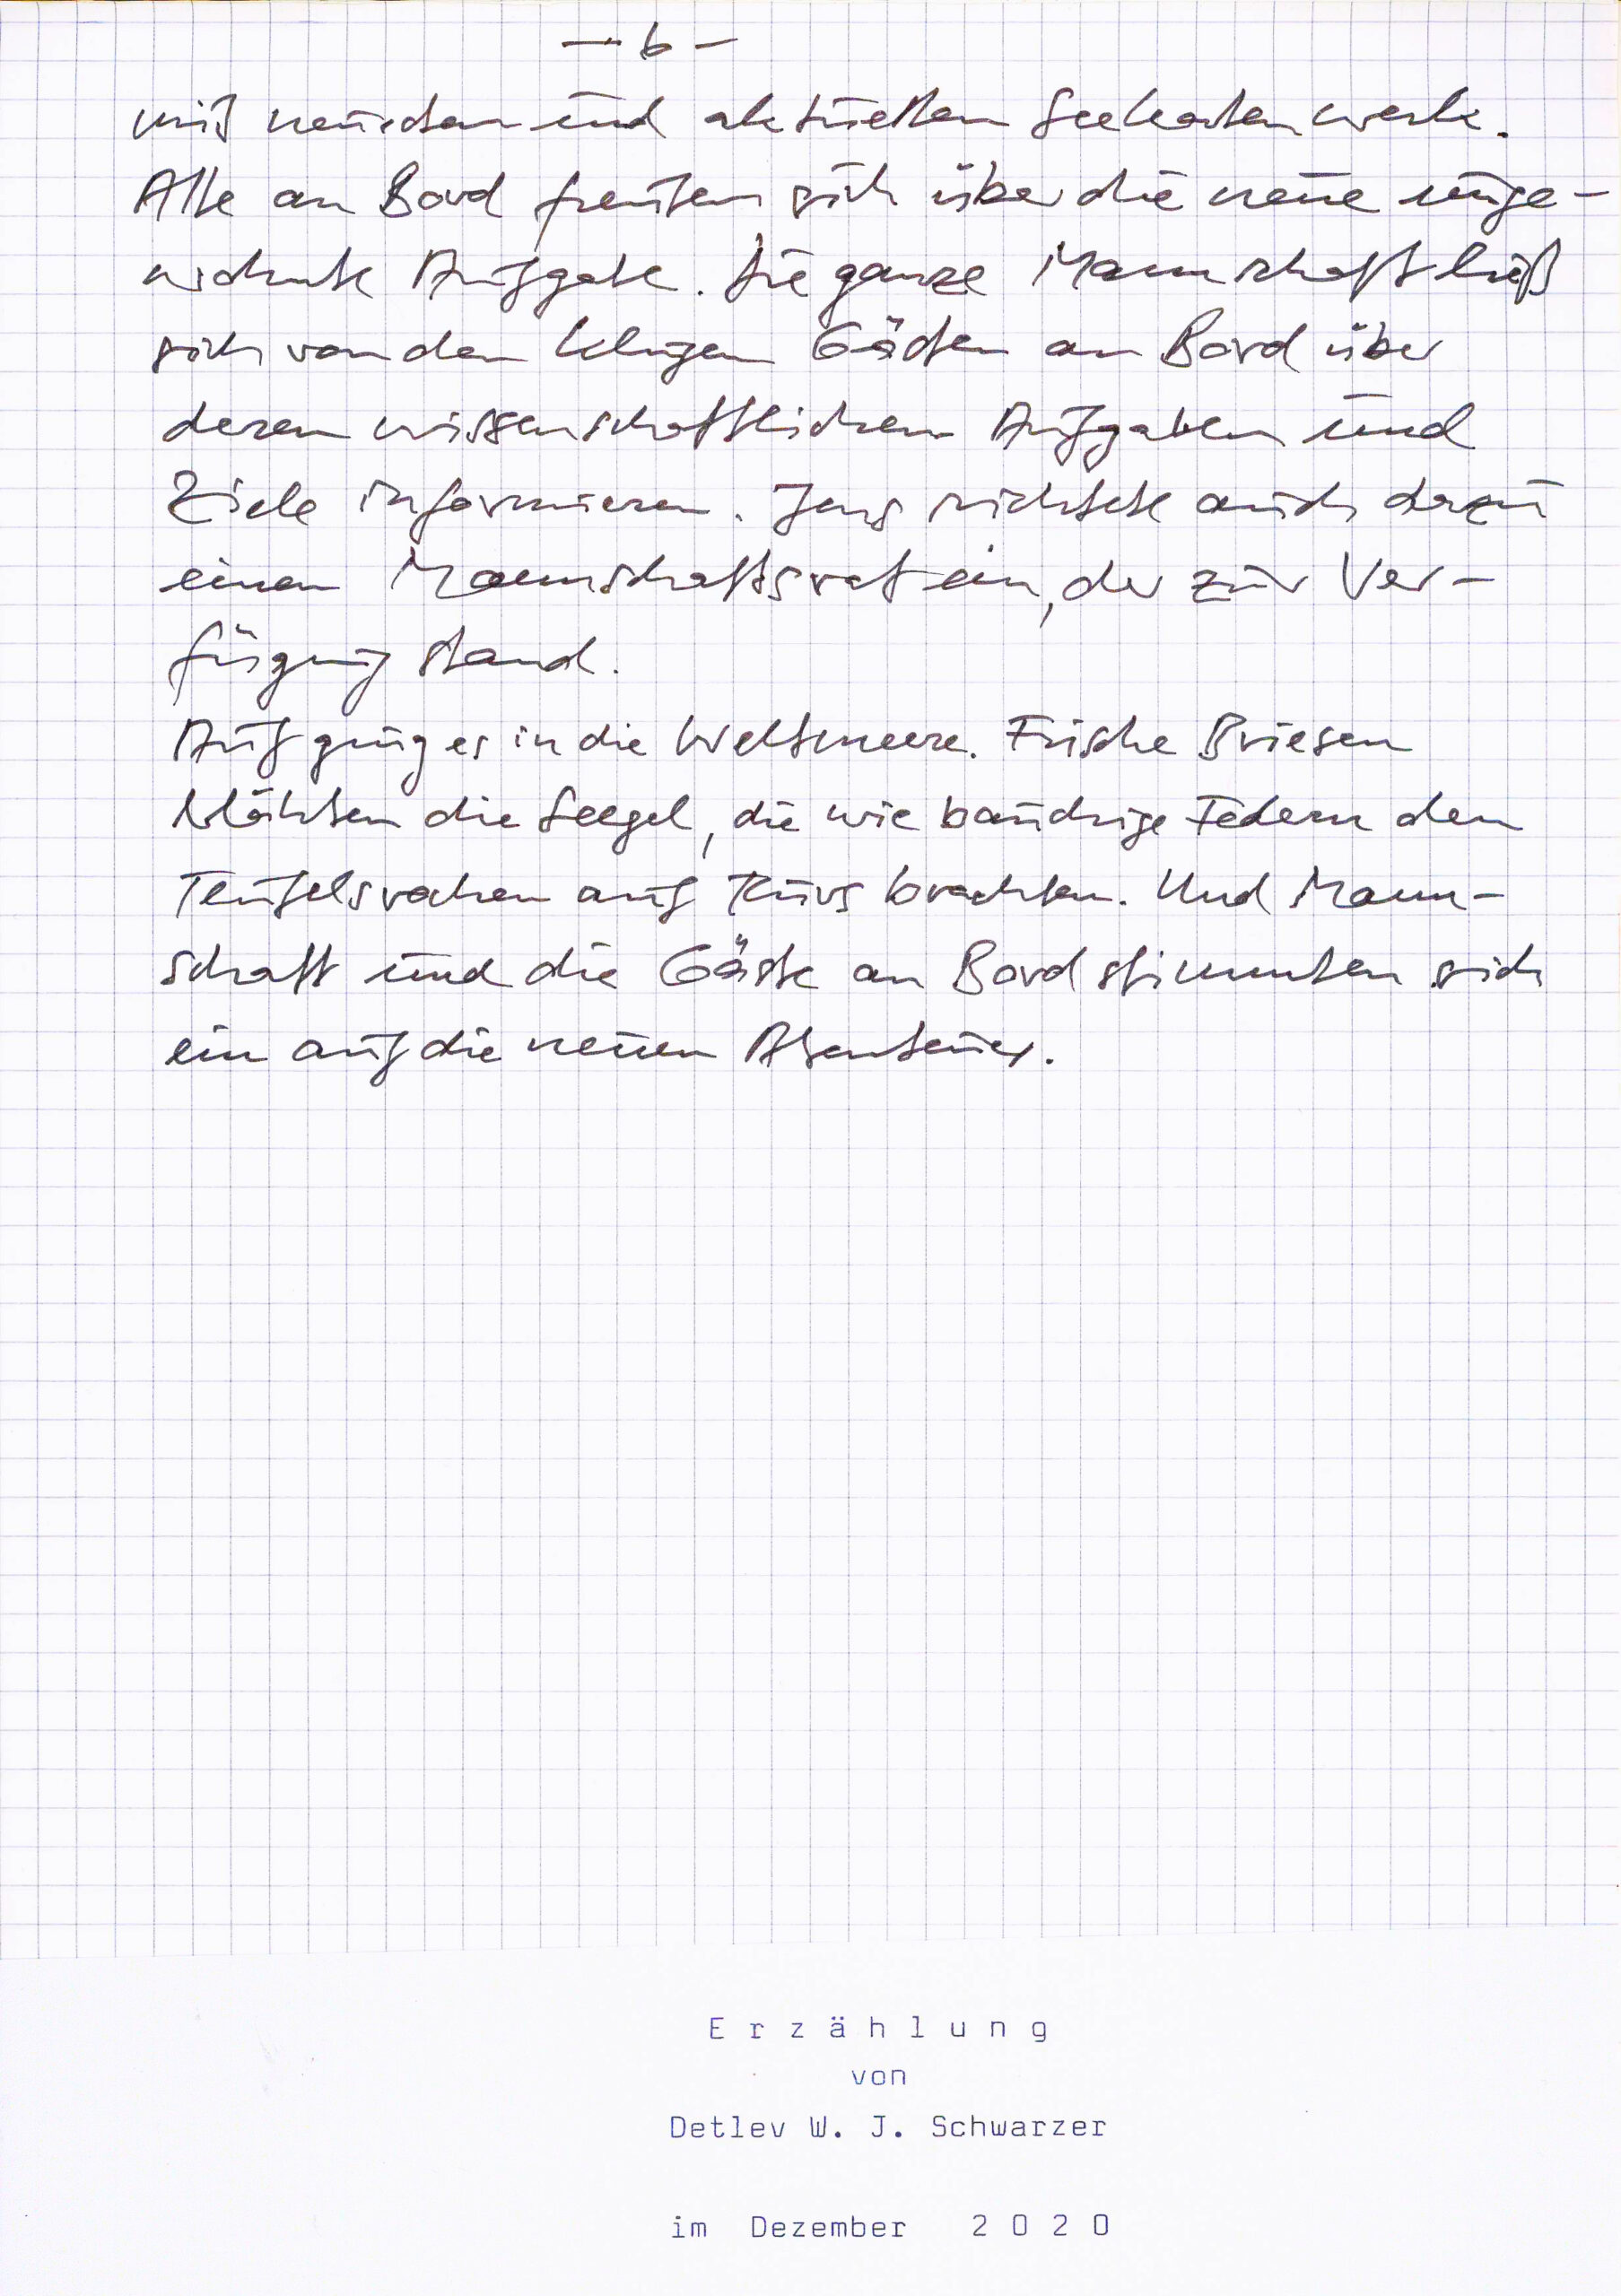 - 6 -
mit neuesten und aktuellen Seekartenwerk.
Alle an Bord freuten sich über die neue unge-
wohnte Aufgabe. Die ganze Mannschaft ließ
sich von den klugen Gästen an Bord über
deren wissenschaftlichen Aufgaben und
Ziele informieren. Jens richtete auch dazu
einen Mannschaftsrat ein, der zur Ver-
fügung stand.
Auf ging es in die Weltmeere. Frische Briesen
blähten die Seegel, die wie bauchige Federn den
Teufelsrochen auf Kurs brachten. Und Mann-
schaft und die Gäste an Bord stimmten sich
ein auf die neuen Abenteuer.
Erzählung
von
Detlev W. J. Schwarzer
im Dezember 2020